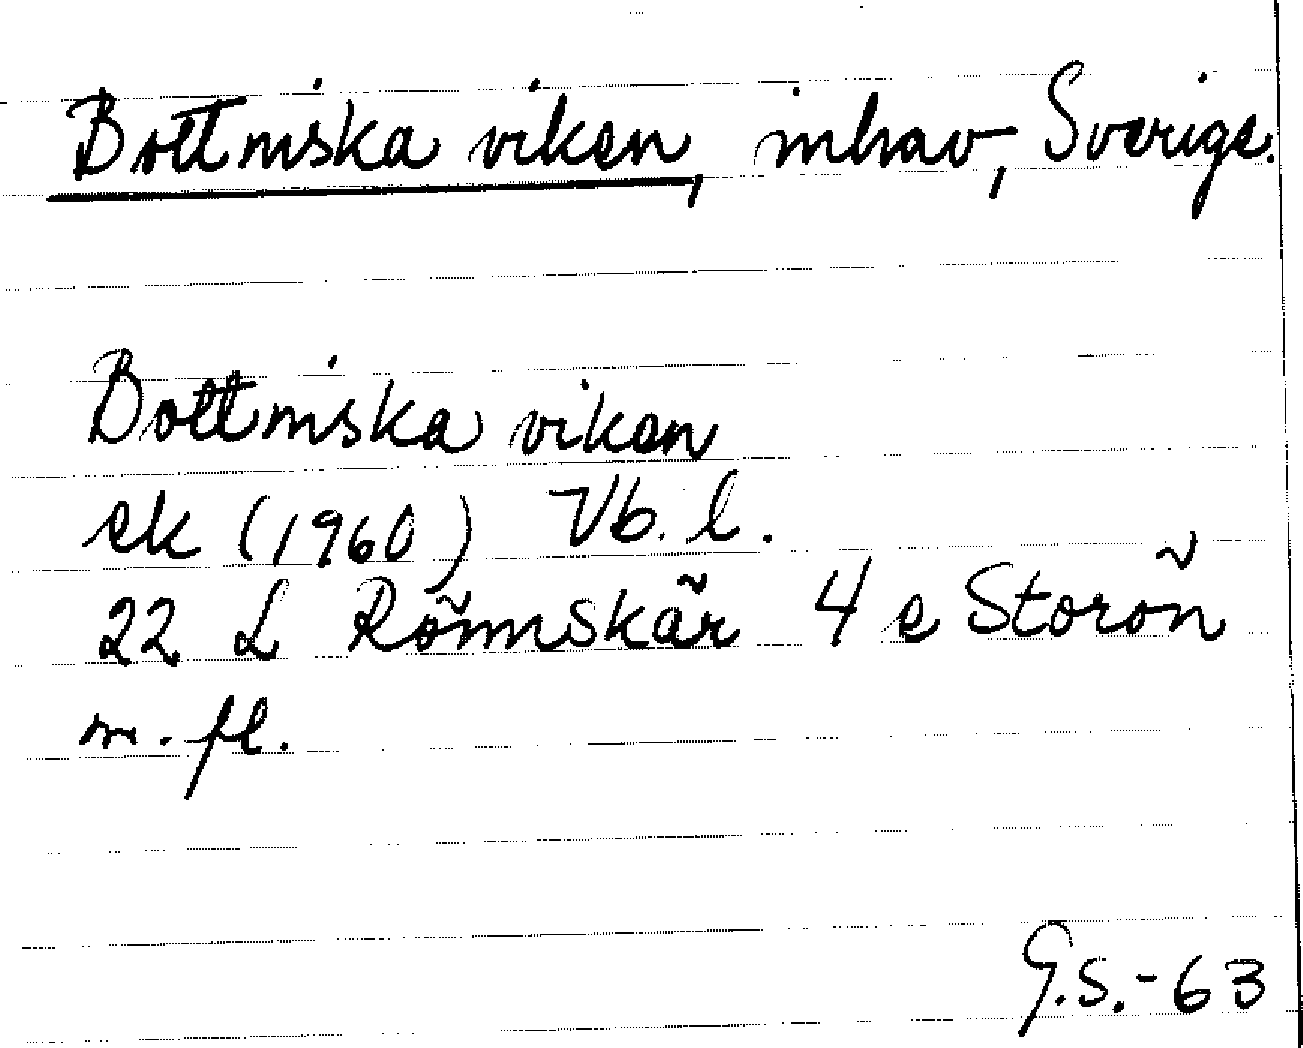 Bottniska viken, innhav, Sverige.
Bottniska viken
ek (1960) Vb. l.
22 L Rönnskär 4 e Storön
m. fl.
G.S.-63